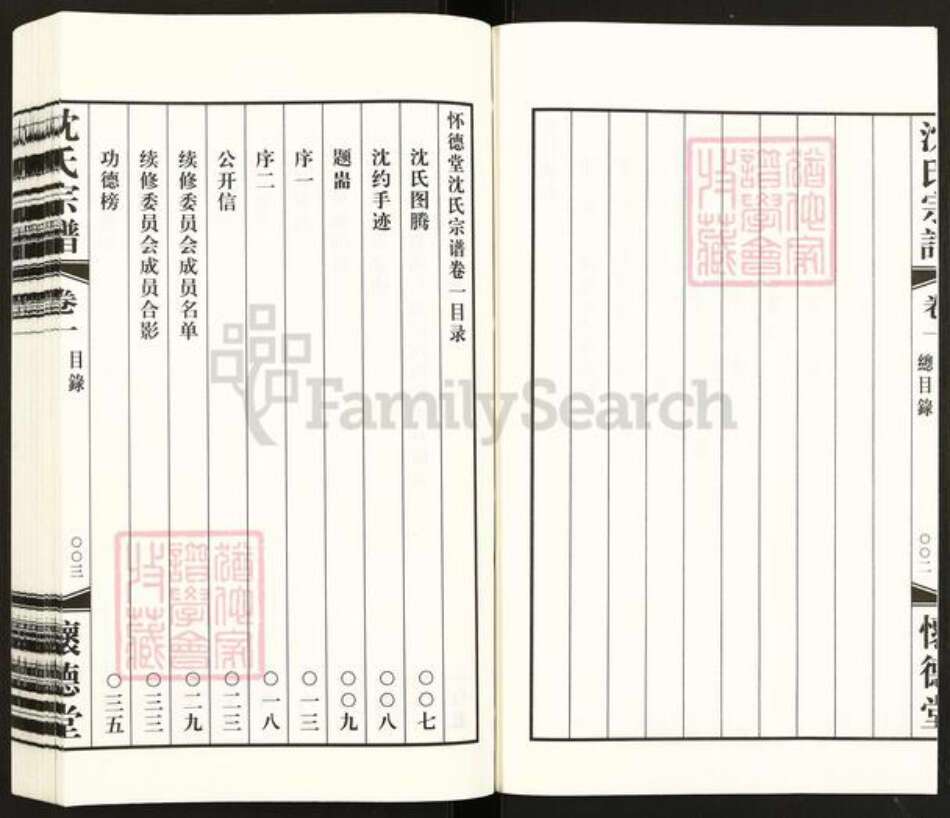 沈氏宗譜
卷一
總目錄
〇〇二
懷德堂
怀德堂沈氏宗谱卷一目录
沈氏图腾 〇〇七
沈约手迹 〇〇八
题耑 〇〇九
序一 〇一三
序二 〇一八
公开信 〇二三
续修委员会成员名单 〇二九
续修委员会成员合影 〇三三
功德榜 〇三五
沈氏宗譜
卷一
目錄
〇〇三
懷德堂
FamilySearch